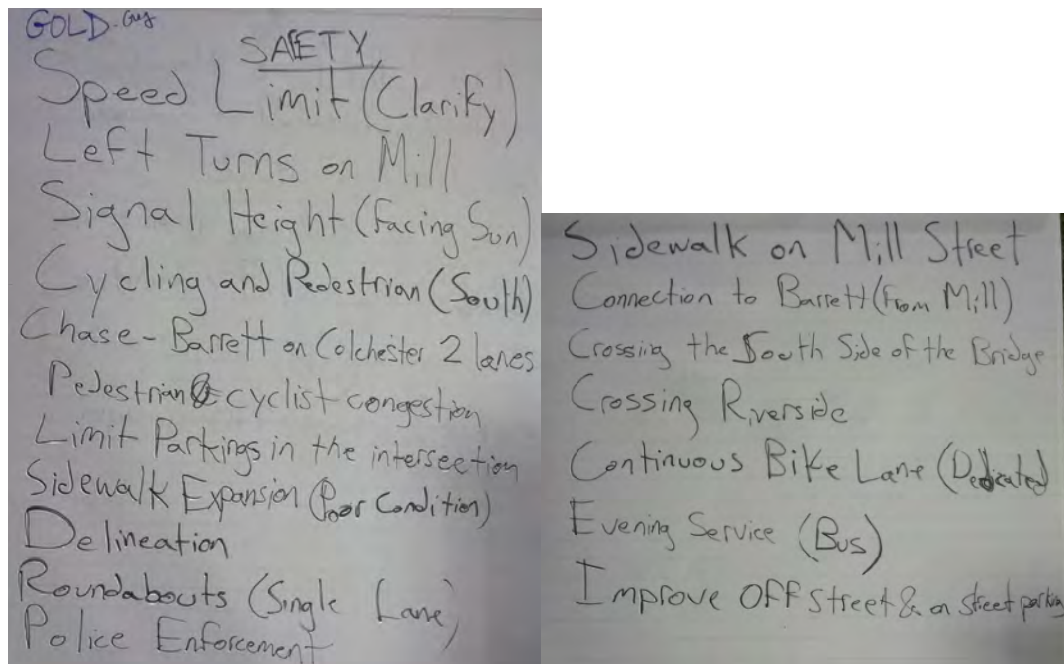 GOLD.Guy
SAFETY
Speed Limit (Clarify)
Left Turns on Mill
Signal Height (Facing Sun)
Cycling and Pedestrian (South)
Chase-Barrett on Colchester 2 lanes
Pedestrian & cyclist congestion
Limit Parkings in the intersection
Sidewalk Expansion (Poor Condition)
Delineation
Roundabouts (Single Lane)
Police Enforcement
Sidewalk on Mill Street
Connection to Barrett (From Mill)
Crossing the South Side of the Bridge
Crossing Riverside
Continuous Bike Lane (Dedicated
Evening Service (Bus)
Improve Off street & on street parking